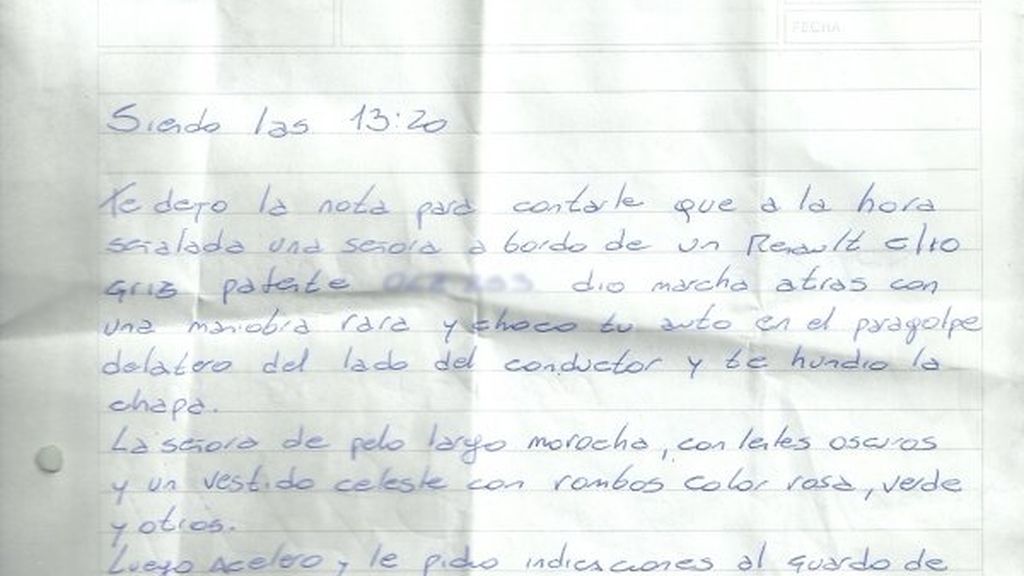 FECHA:
Siendo las 13:20
Te dejo la nota para contarte que a la hora
señalada una señora a bordo de un Renault clio
Gris patente dio marcha atras con
una maniobra rara y choco tu auto en el paragolpe
delatero del lado del conductor y te hundio la
chapa.
La señora de pelo largo morocha, con lentes oscuros
y un vestido celeste con rombos color rosa, verde
y otros.
Luego Acelero y le pidio indicaciones al guarda de